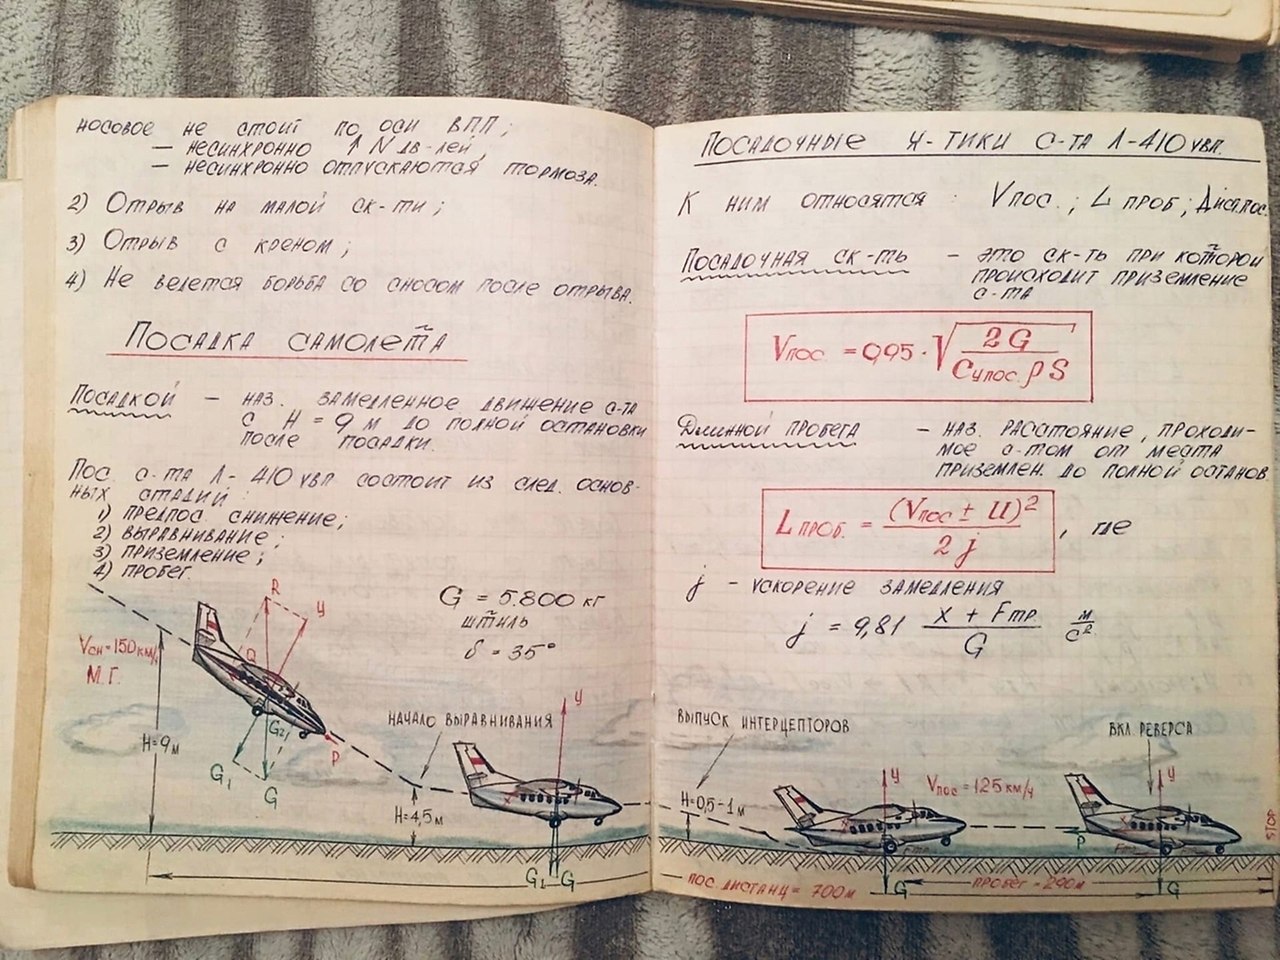 носовое не стоит по оси ВПП;
— несинхронно ↑ N дв-лей,
— несинхронно отпускаются тормоза.
2) Отрыв на малой ск-ти;
3) Отрыв с креном;
4) Не ведется борьба со сносом после отрыва.
Посадка самолета
Посадкой — наз. замедленное движение с-та
с H = 9 м до полной остановки
после посадки.
Пос. с-та Л-410 увп состоит из след. основ-
ных стадий:
1) предпос. снижение;
2) выравнивание;
3) приземление;
4) пробег.
G = 5.800 кг
штиль
δ = 35°
Vсн = 150 км/ч
М.Г.
R
У
Q
G2
P
G1
G
H = 9 м
начало выравнивания
H = 4,5 м
У
X
G1 G
Посадочные х-тики с-та Л-410 увп.
К ним относятся: Vпос.; L проб; Дист.пос.
Посадочная ск-ть — это ск-ть при которой
происходит приземление
с-та
Vпос. = 0,95 · √ 2G / Cупос. ρ S
Длинной пробега — наз. расстояние, проходи-
мое с-том от места
приземлен. до полной останов
L проб. = (Vпос ± U)² / 2j , где
j — ускорение замедления
j = 9,81 X + Fтр. / G м/с²
выпуск интерцепторов
вкл. реверса
H = 0,5-1 м
У
Vпос = 125 км/ч
У
X
Fтр
P
X
Fтр
STOP
пос. дистанц = 700 м
G
пробег = 290м
G